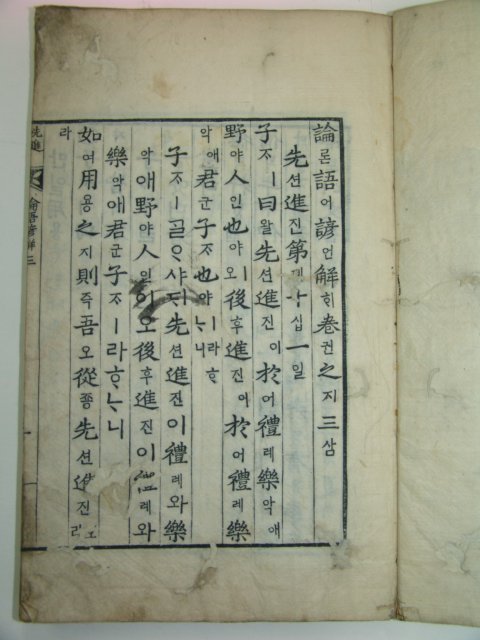 論론語어諺언解ᄒᆡ卷권之지三삼
先션進진第뎨十십一일
子ᄌᆞㅣ曰왈先션進진이於어禮례樂악애
野야人인也야ㅣ오後후進진이於어禮례樂
악애君군子ᄌᆞ也야ㅣ라ᄒᆞᄂᆞ니
子ᄌᆞㅣᄀᆞᆯᄋᆞ샤ᄃᆡ先션進진이禮례와樂
악애野야人인이오後후進진이禮례와
樂악애君군子ᄌᆞㅣ라ᄒᆞᄂᆞ니
如여用용之지則즉吾오從죵先션進진
라
先進 論語諺解三 一